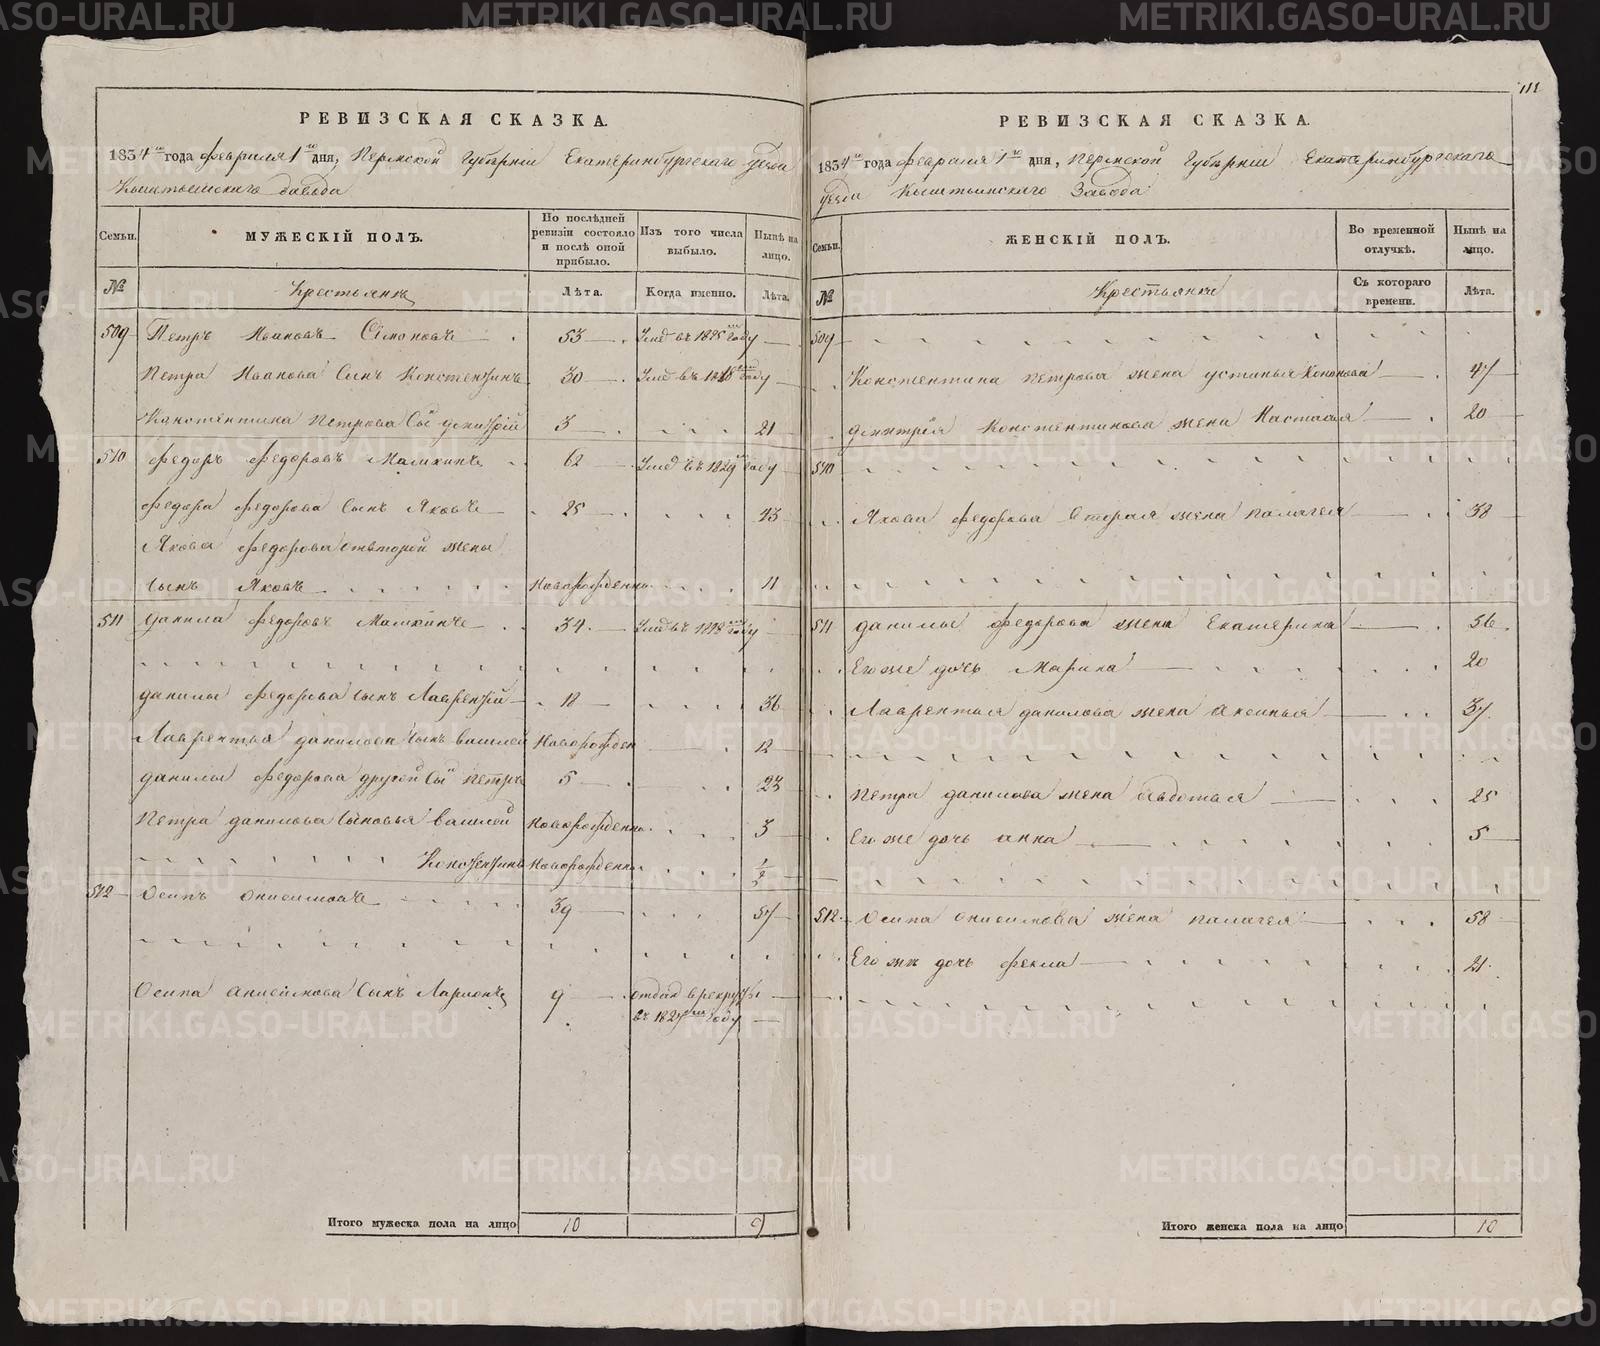 111
РЕВИЗСКАЯ СКАЗКА.
1834 го года февраля 1 го дня, Пермской Губерніи Екатеринбургскаго уезда
Кыштымскаго завода
Семьи.
МУЖЕСКІЙ ПОЛЪ.
По послѣдней ревизіи состояло и послѣ оной прибыло.
Изъ того числа выбыло.
Нынѣ на лицо.
№
Крестьянъ
Лѣта.
Когда именно.
Лѣта.
509 Петръ Ивановъ Симоновъ 53 Умеръ въ 1825 году
Петра Иванова Сынъ Констентинъ 30 году
Констентина Петрова Сы Дмитрій 3 21
510 Федоръ Федоровъ Малихинъ 62 въ 1829 году
Федора Федорова Сынъ Яковъ 25 43
Якова Федорова отвторой жены
Сынъ Яковъ Новорожденны 11
511 Данила Федоровъ Малихинъ 34 году
Данилы Федорова Сынъ Лаврентій 18 36
Лаврентья Данилова Сынъ Василей Новорожден 12
Данилы Федорова другой Сы Петръ 5 23
Петра Данилова Сыновья Василей Новорожденны 3
Констентинъ Новорожденны
512 Осипъ Онисимовъ 39 57
Осипа Анисимова Сынъ Ларионъ 9 отдан в рекруты
въ 1827 году
Итого мужеска пола на лицо 10 9
РЕВИЗСКАЯ СКАЗКА.
1834 го года февраля 1 го дня, Пермской Губерніи Екатеринбургскаго
уезда Кыштымскаго Завода
Семьи.
ЖЕНСКІЙ ПОЛЪ.
Во временной отлучкѣ.
Нынѣ на лицо.
№
Крестьянъ
Съ котораго времени.
Лѣта.
509
Констентина Петрова жена Устинья Кононова 47
Дмитрія Констентинова жена Настасья 20
510
Якова Федорова вторая жена Палагея 38
511 Данилы Федорова жена Екатерина 56
Его же дочь Марина 20
Лаврентья Данилова жена Аксинья 37
Петра Данилова жена Авдотья 25
Его же дочь Анна 5
512 Осипа Онисимова жена Палагея 58
Его же дочь Фекла 21
Итого женска пола на лицо 10
METRIKI.GASO-URAL.RU